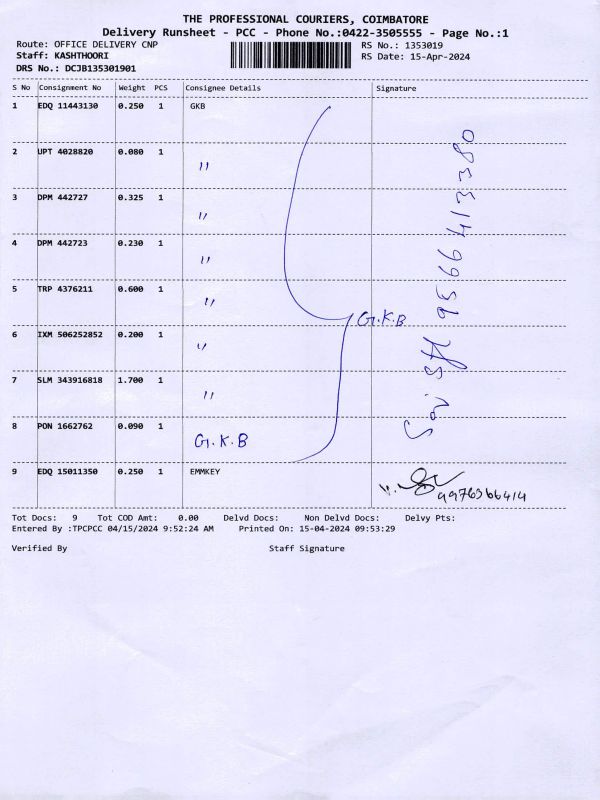 THE PROFESSIONAL COURIERS, COIMBATORE
Delivery Runsheet - PCC - Phone No.:0422-3505555 - Page No.:1
Route: OFFICE DELIVERY CNP RS No.: 1353019
Staff: KASHTHOORI RS Date: 15-Apr-2024
DRS No.: DCJB135301901
S No Consignment No Weight PCS Consignee Details Signature
1 EDQ 11443130 0.250 1 GKB
2 UPT 4028820 0.080 1 "
3 DPM 442727 0.325 1 "
4 DPM 442723 0.230 1 "
5 TRP 4376211 0.600 1 "
G.K.B
9566413380
6 IXM 506252852 0.200 1 "
7 SLM 343916818 1.700 1 "
8 PON 1662762 0.090 1 G.K.B
9 EDQ 15011350 0.250 1 EMMKEY
9976366414
Tot Docs: 9 Tot COD Amt: 0.00 Delvd Docs: Non Delvd Docs: Delvy Pts:
Entered By :TPCPCC 04/15/2024 9:52:24 AM Printed On: 15-04-2024 09:53:29
Verified By Staff Signature